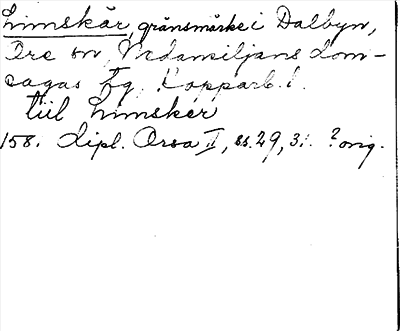 Limskär, gränsmärke i Dalbyn,
Ore sn, Nedansiljans dom-
sagas tg, Kopparb. l.
tiil Limsker
158. Dipl. Orsa II, ss. 29, 31. ? orig.